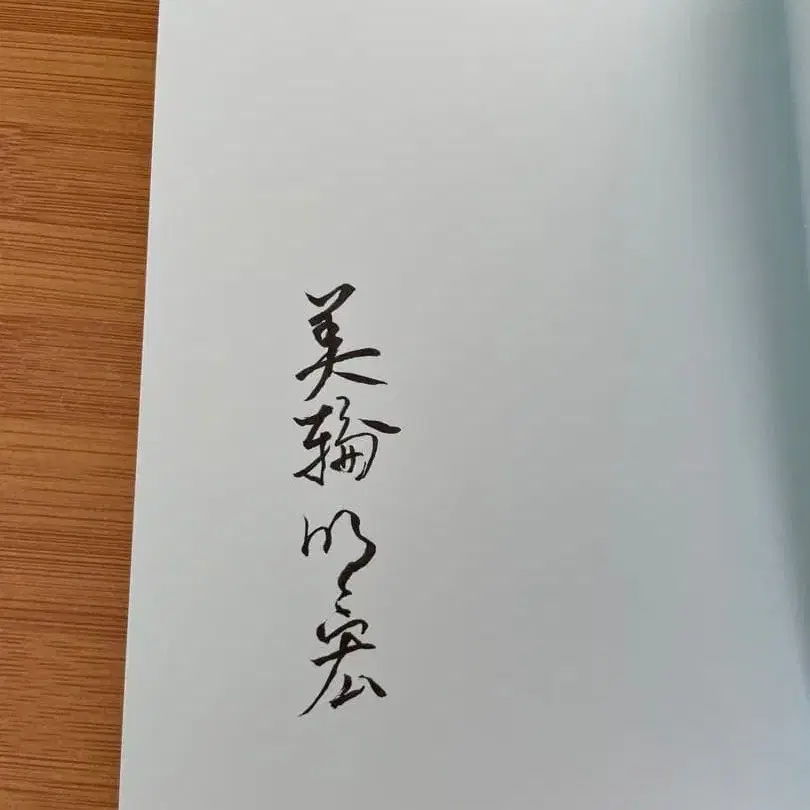 美輪明宏